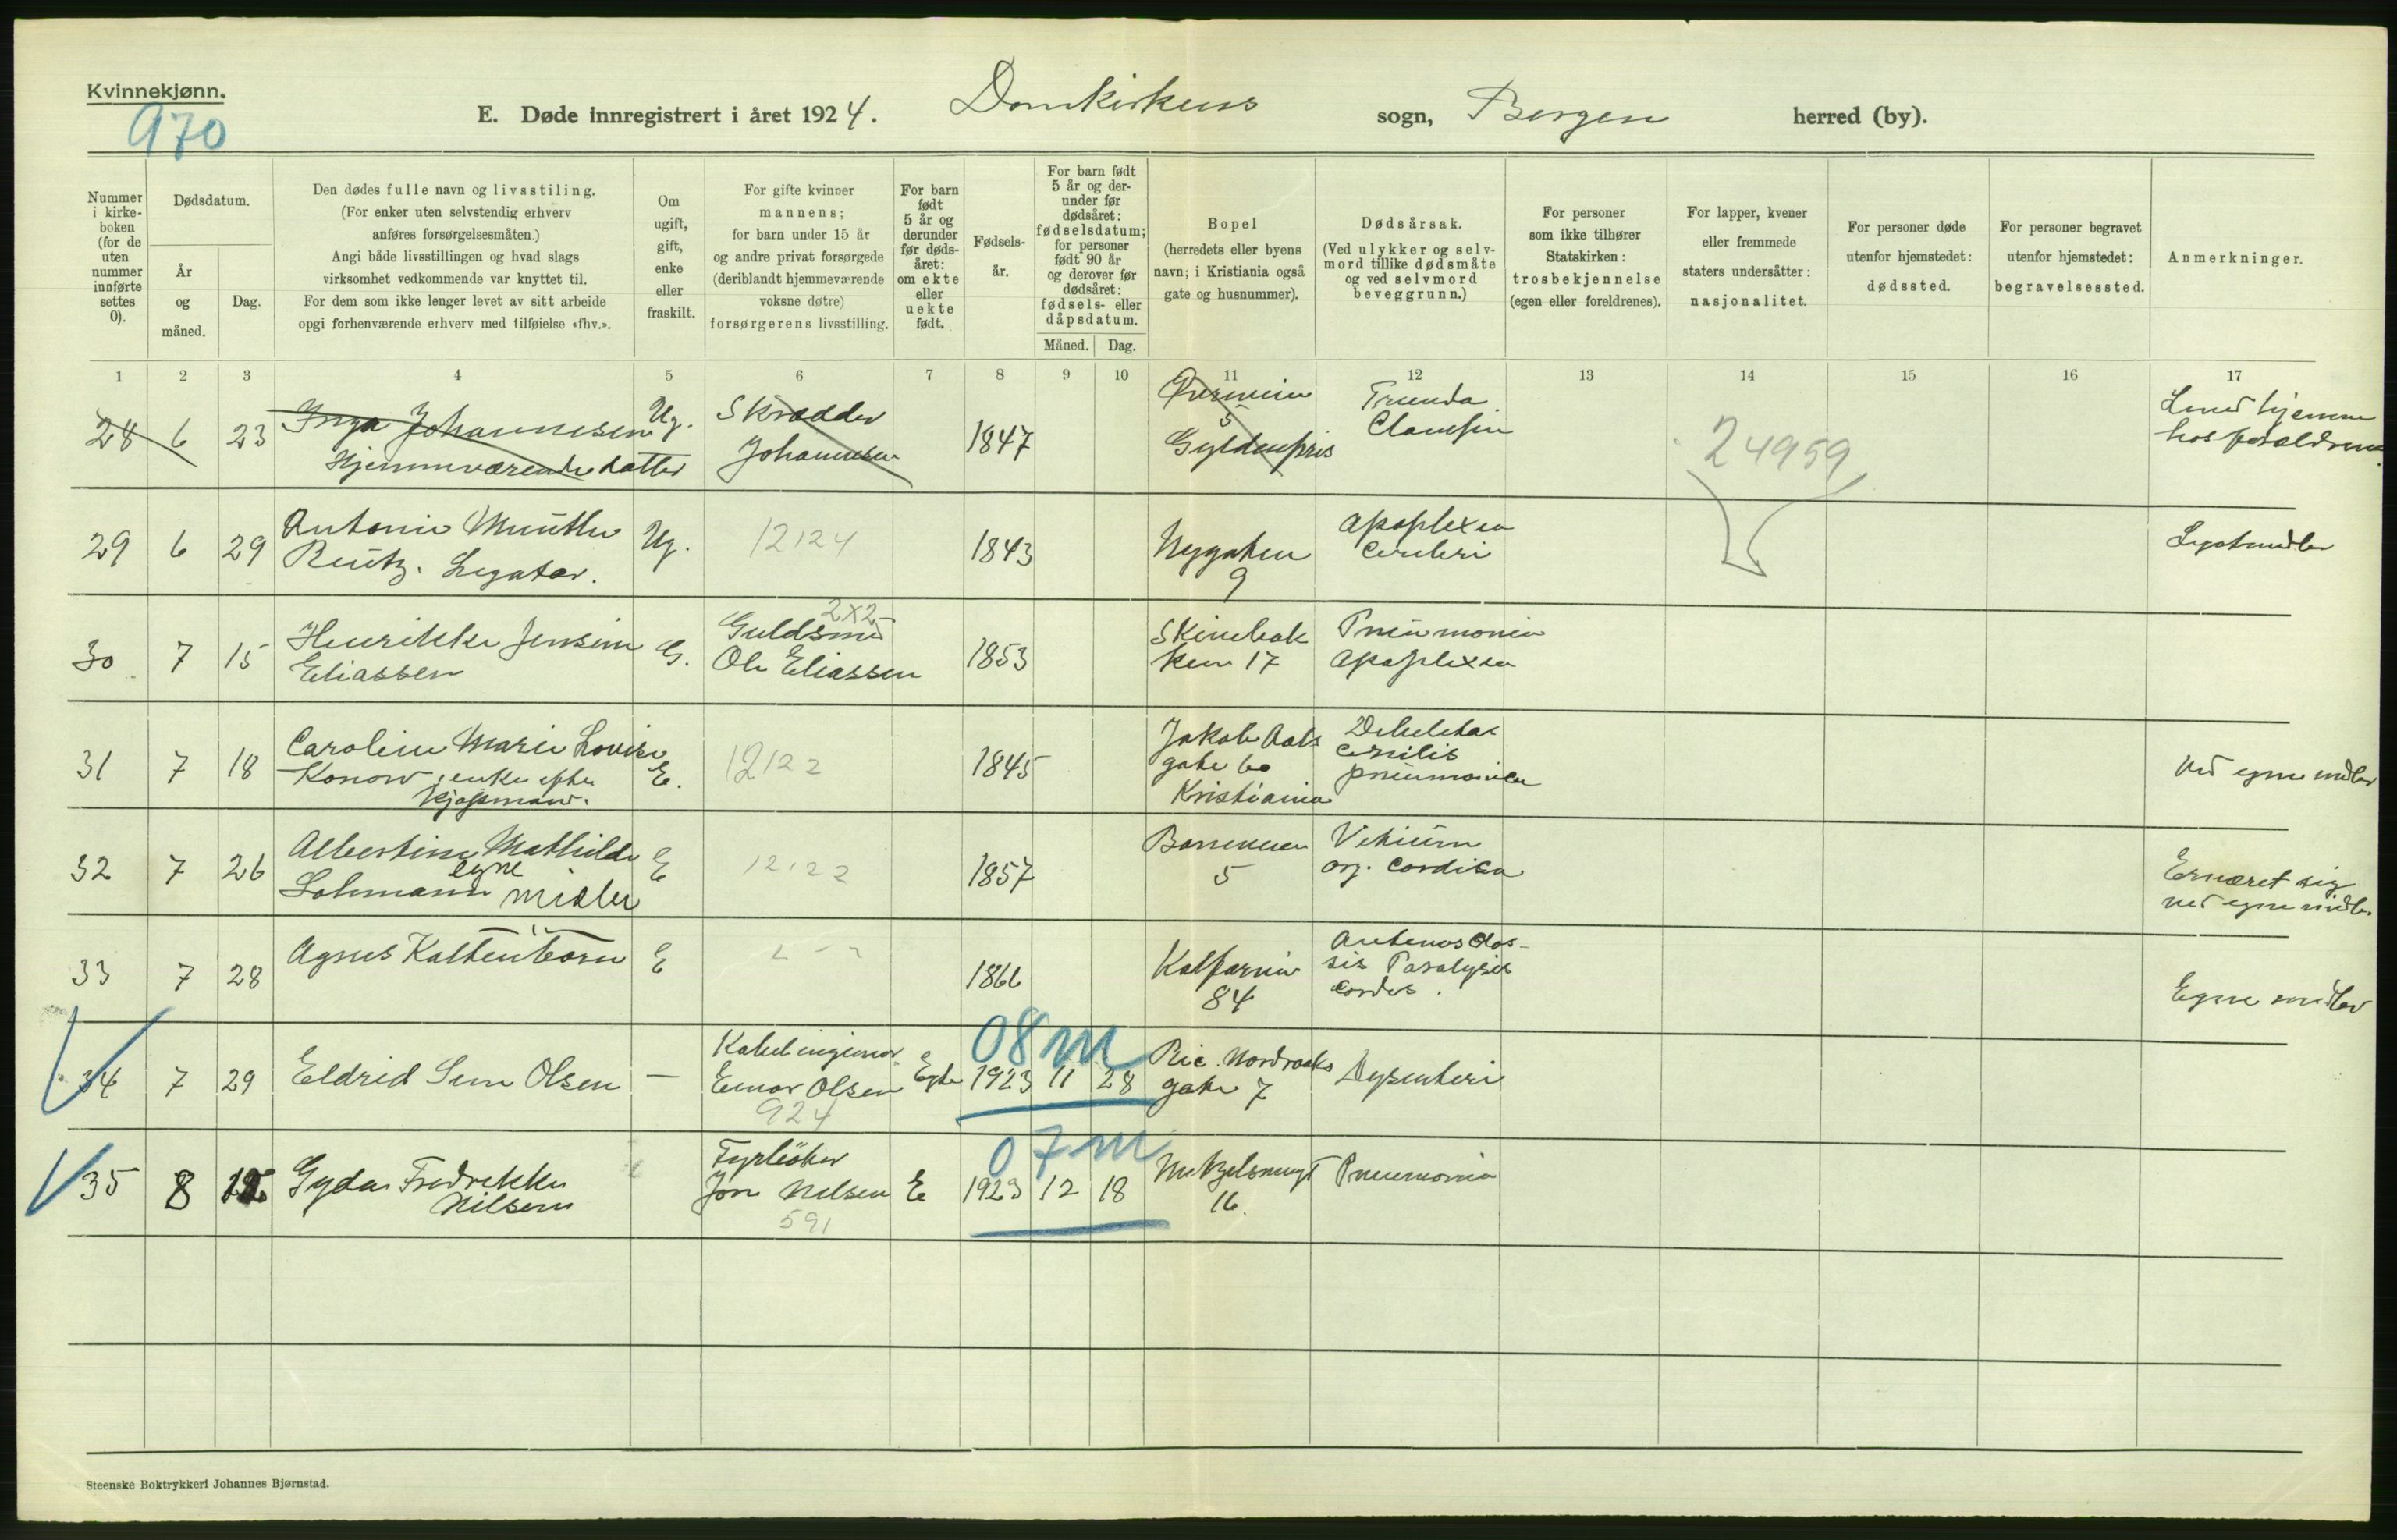 Kvinnekjønn.
970
E. Døde innregistrert i året 1924. Domkirkens sogn, Bergen herred (by).
Nummer i kirke-boken (for de uten nummer innførte settes 0).
Dødsdatum.
År og måned.
Dag.
Den dødes fulle navn og livsstiling.
(For enker uten selvstendig erhverv
anføres forsørgelsesmåten.)
Angi både livsstillingen og hvad slags
virksomhet vedkommende var knyttet til.
For dem som ikke lenger levet av sitt arbeide
opgi forhenværende erhverv med tilføielse «fhv.».
Om ugift, gift, enke eller fraskilt.
For gifte kvinner
mannens;
for barn under 15 år
og andre privat forsørgede
(deriblandt hjemmeværende
voksne døtre)
forsørgerens livsstilling.
For barn født 5 år og derunder før døds-året: om ekte eller uekte født.
Fødsels-år.
For barn født 5 år og der-under før dødsåret: fødselsdatum; for personer født 90 år og derover før dødsåret: fødsels- eller dåpsdatum.
Måned. Dag.
Bopel
(herredets eller byens
navn; i Kristiania også
gate og husnummer).
Dødsårsak.
(Ved ulykker og selv-
mord tillike dødsmåte
og ved selvmord
beveggrunn.)
For personer
som ikke tilhører
Statskirken:
trosbekjennelse
(egen eller foreldrenes).
For lapper, kvener
eller fremmede
staters undersåtter:
nasjonalitet.
For personer døde
utenfor hjemstedet:
dødssted.
For personer begravet
utenfor hjemstedet:
begravelsessted.
Anmerkninger.
1 2 3 4 5 6 7 8 9 10 11 12 13 14 15 16 17
28 6 23 Inga Johannesen Ug. Skrædder 1847
Hjemmværende datter Johannesen
5
Gyldenpris
24959
Levet hjemme
hos forældrene.
29 6 29 Antonie Münthe Ug. 12124 1843 Nygaten Apoplexia
Reutz. Legatar. 9 Cerebri
Legatmidler
30 7 15 Henrikke Jensine G. Guldsmed 2x2 1853 Skivebak Pneumonia
Eliassen Ole Eliassen ken 17 Apoplexia
31 7 18 Caroline Marie Lovise E. 12122 1845 Jakob Aals
Konow, enke efter gate 60
Kjøpmand. Kristiania pneumonia
Ved egne midler
32 7 26 Albertine Mathilde E 12122 1857 Vitium
Lohmann egne midler 5 org. cordisa
Ernæret sig
ved egne midler
33 7 28 Agnes Kaltenborn E 1866 Kalfarvei
84 sis Paralysis
cordis.
Egne midler
08 m
34 7 29 Eldrid Sem Olsen — Kabelingeniør Egte 1923 11 28 Ric. Nordraaks Dysenteri
Einar Olsen gate 7
924
07 m
35 8 12 Gyda Fredrikke Fyrbøter E 1923 12 18 Pneumonia
Nilsen Jon Nilsen 16.
591
Steenske Boktrykkeri Johannes Bjørnstad.